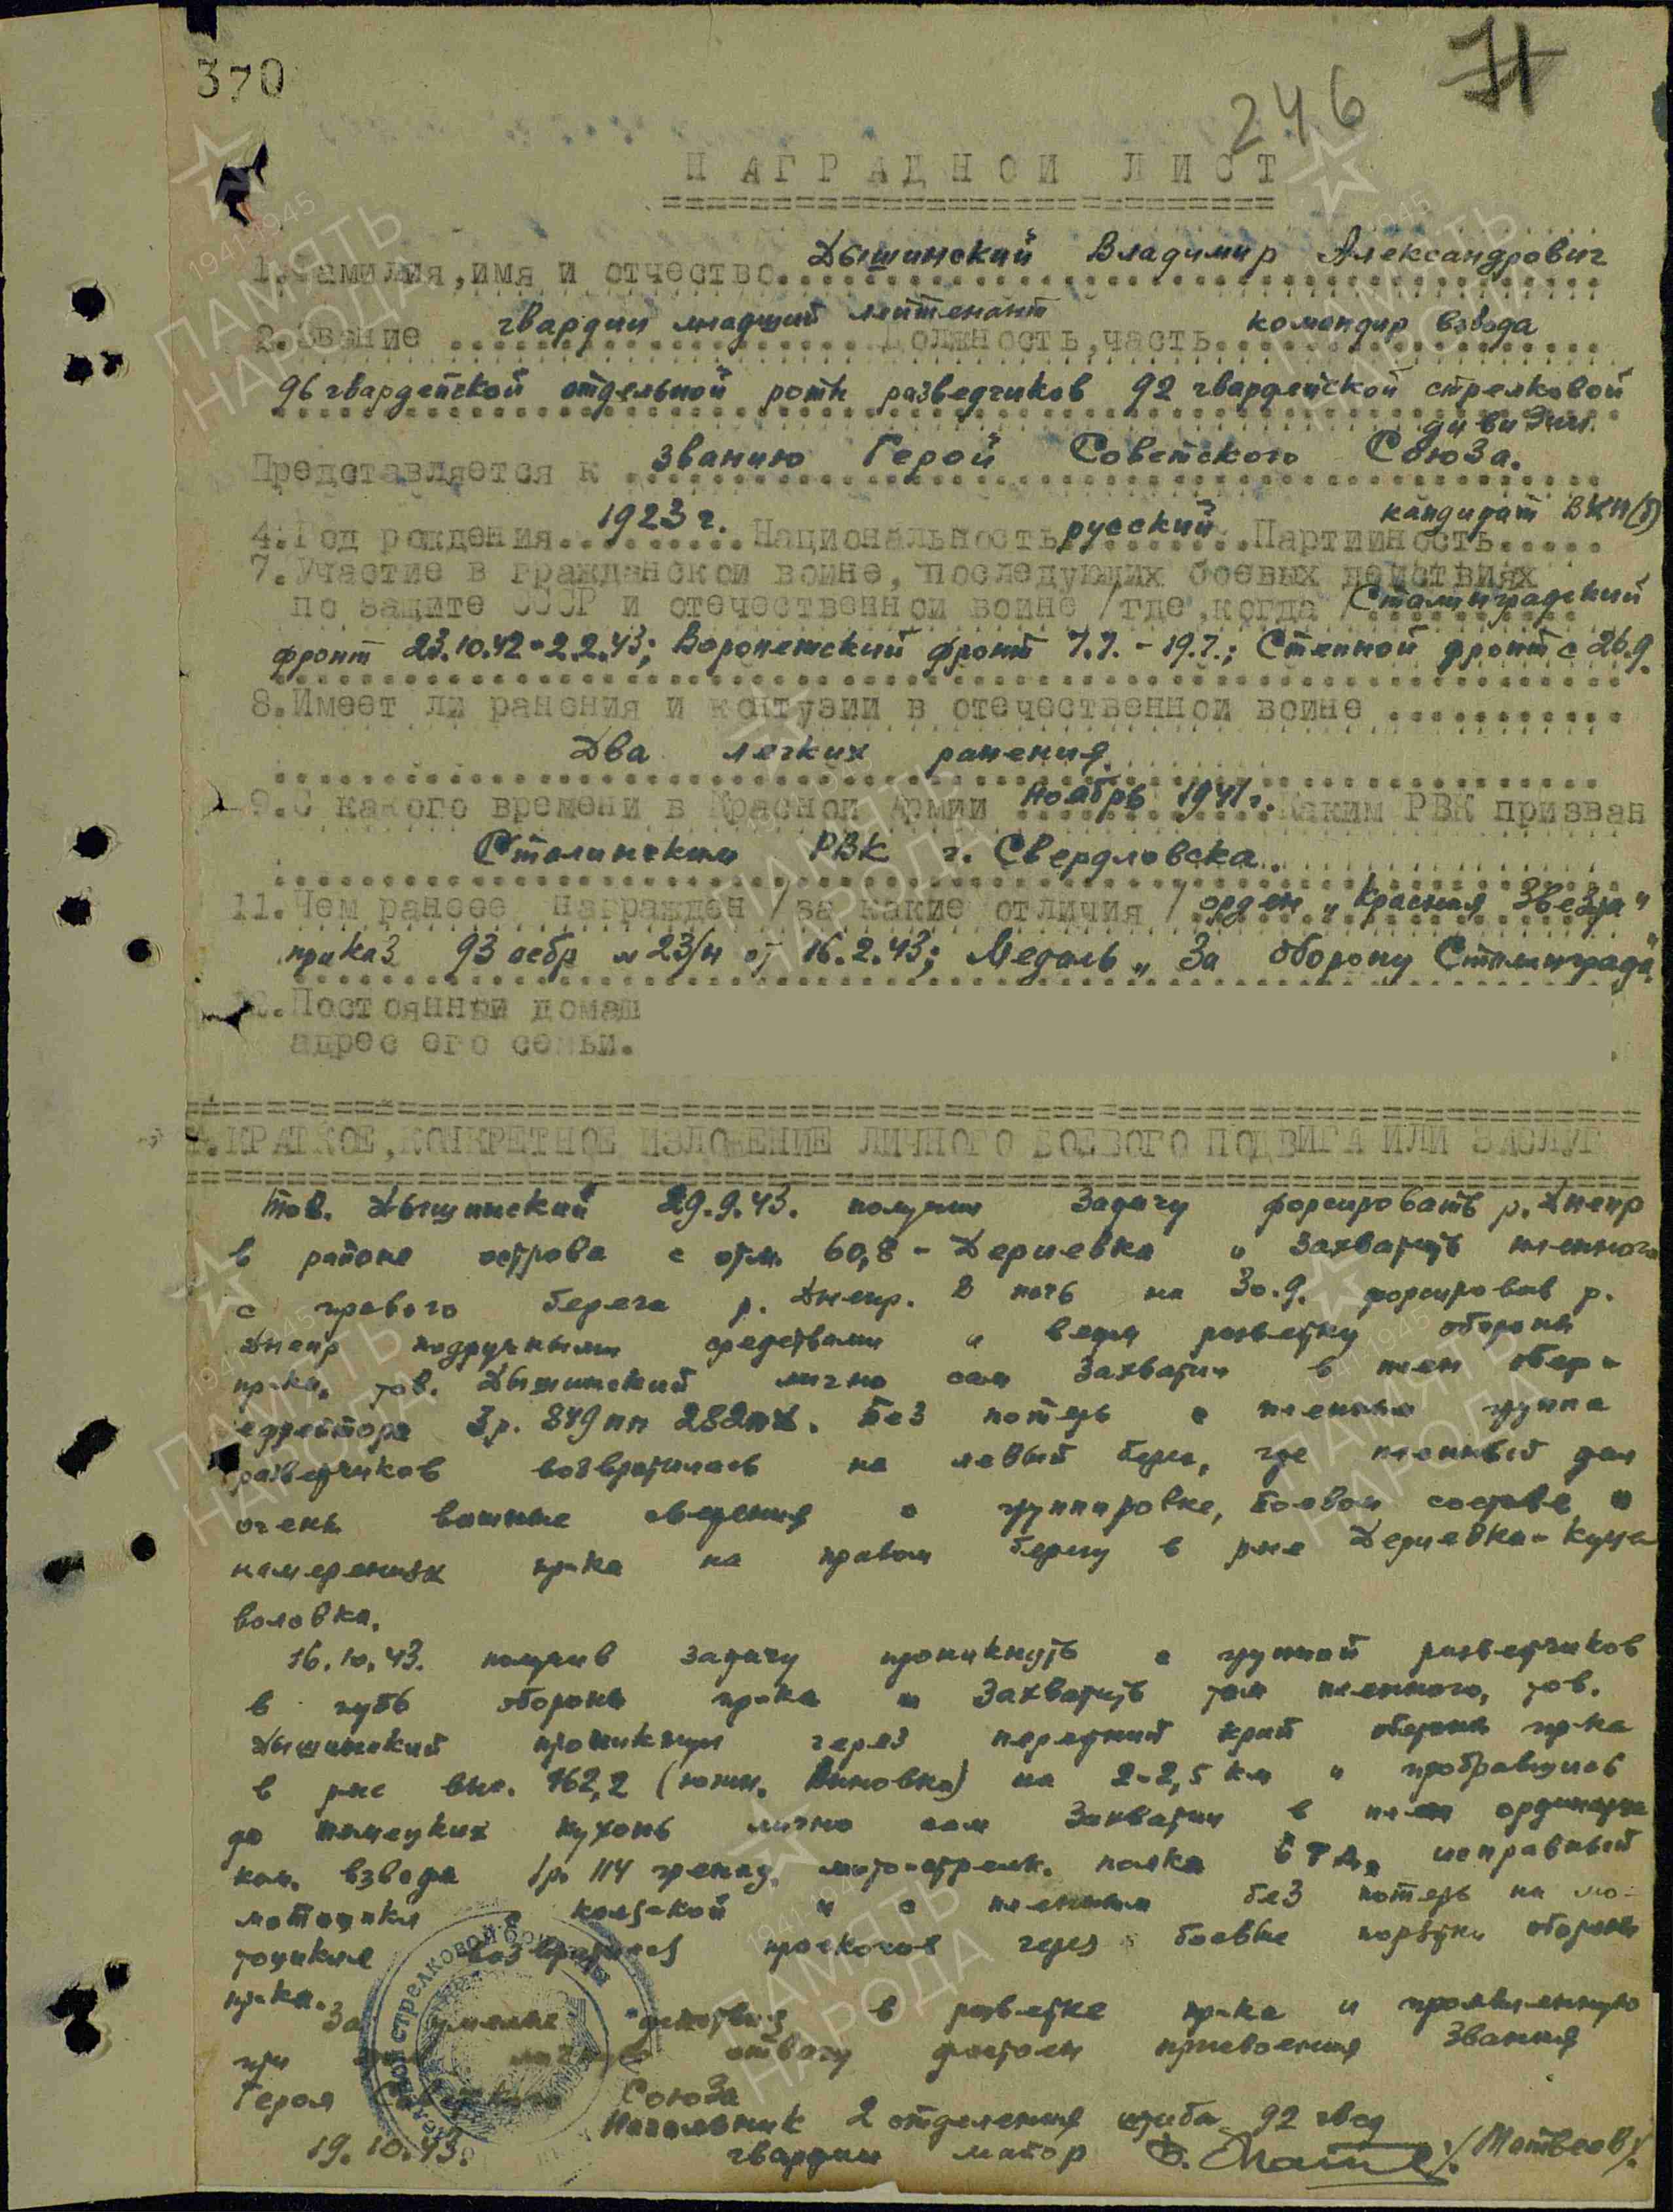 370
246
71
НАГРАДНОЙ ЛИСТ
1. Фамилия, имя и отчество Дышинский Владимир Александрович
2. Звание гвардии младший лейтенант должность, часть командир взвода
96 гвардейской отдельной роты разведчиков 92 гвардейской стрелковой
дивизии.
Представляется к званию Герой Советского Союза.
4. Год рождения 1923 г. Национальность русский Партийность кандидат ВКП(б)
7. Участие в гражданской войне, последующих боевых действиях
по защите СССР и отечественной войне /где, когда/ Сталинградский
фронт 23.10.42-2.2.43; Воронежский фронт 7.7.-19.7.; Степной фронт с 26.9.
8. Имеет ли ранения и контузии в отечественной войне
Два легких ранения.
9. С какого времени в Красной Армии Ноябрь 1941 г. Каким РВК призван
Сталинским РВК г. Свердловска.
11. Чем ранее награжден /за какие отличия/ орден "Красная Звезда"
приказ 93 осбр № 23/н от 16.2.43; Медаль "За оборону Сталинграда".
12. Постоянный домаш
адрес его семьи.
А. КРАТКОЕ, КОНКРЕТНОЕ ИЗЛОЖЕНИЕ ЛИЧНОГО БОЕВОГО ПОДВИГА ИЛИ ЗАСЛУГ
Тов. Дышинский 29.9.43. получил задачу форсировать р. Днепр
в районе острова с отм. 60,8 - Дериевка и захватить пленного
с правого берега р. Днепр. В ночь на 30.9. форсировав р.
Днепр подручными средствами и ведя разведку обороны
пр-ка, тов. Дышинский лично сам захватил в плен обер-
ефрейтора 3р. 849 пп 282 пд. Без потерь с пленным группа
разведчиков возвратилась на левый берег, где пленный дал
очень важные сведения о группировке, боевом составе и
намерениях пр-ка на правом берегу в р-не Дериевка-Куце-
воловка.
16.10.43. получив задачу проникнуть с группой разведчиков
в глубь обороны пр-ка и захватить там пленного, тов.
Дышинский проникнув через передний край обороны пр-ка
в р-не выс. 162,2 (южн. Анновка) на 2-2,5 км и пробравшись
до немецких кухонь лично сам захватил в плен ординарца
ком. взвода 1р. 114 гренад. мото-стрелк. полка 6 ТД, исправный
мотоцикл с коляской и с пленным без потерь на мо-
тоцикле возвратился проскочив через боевые порядки обороны
пр-ка.
За умелые действия в разведке пр-ка и проявленную
при этом личную отвагу достоин присвоения звания
Героя Советского Союза
Начальник 2 отделения штаба 92 гвсд
19.10.43. гвардии майор /Матвеев/.
стрелковой
1941-1945
ПАМЯТЬ
НАРОДА
1941-1945
ПАМЯТЬ
НАРОДА
1941-1945
ПАМЯТЬ
НАРОДА
1941-1945
ПАМЯТЬ
НАРОДА
1941-1945
ПАМЯТЬ
НАРОДА
1941-1945
ПАМЯТЬ
НАРОДА